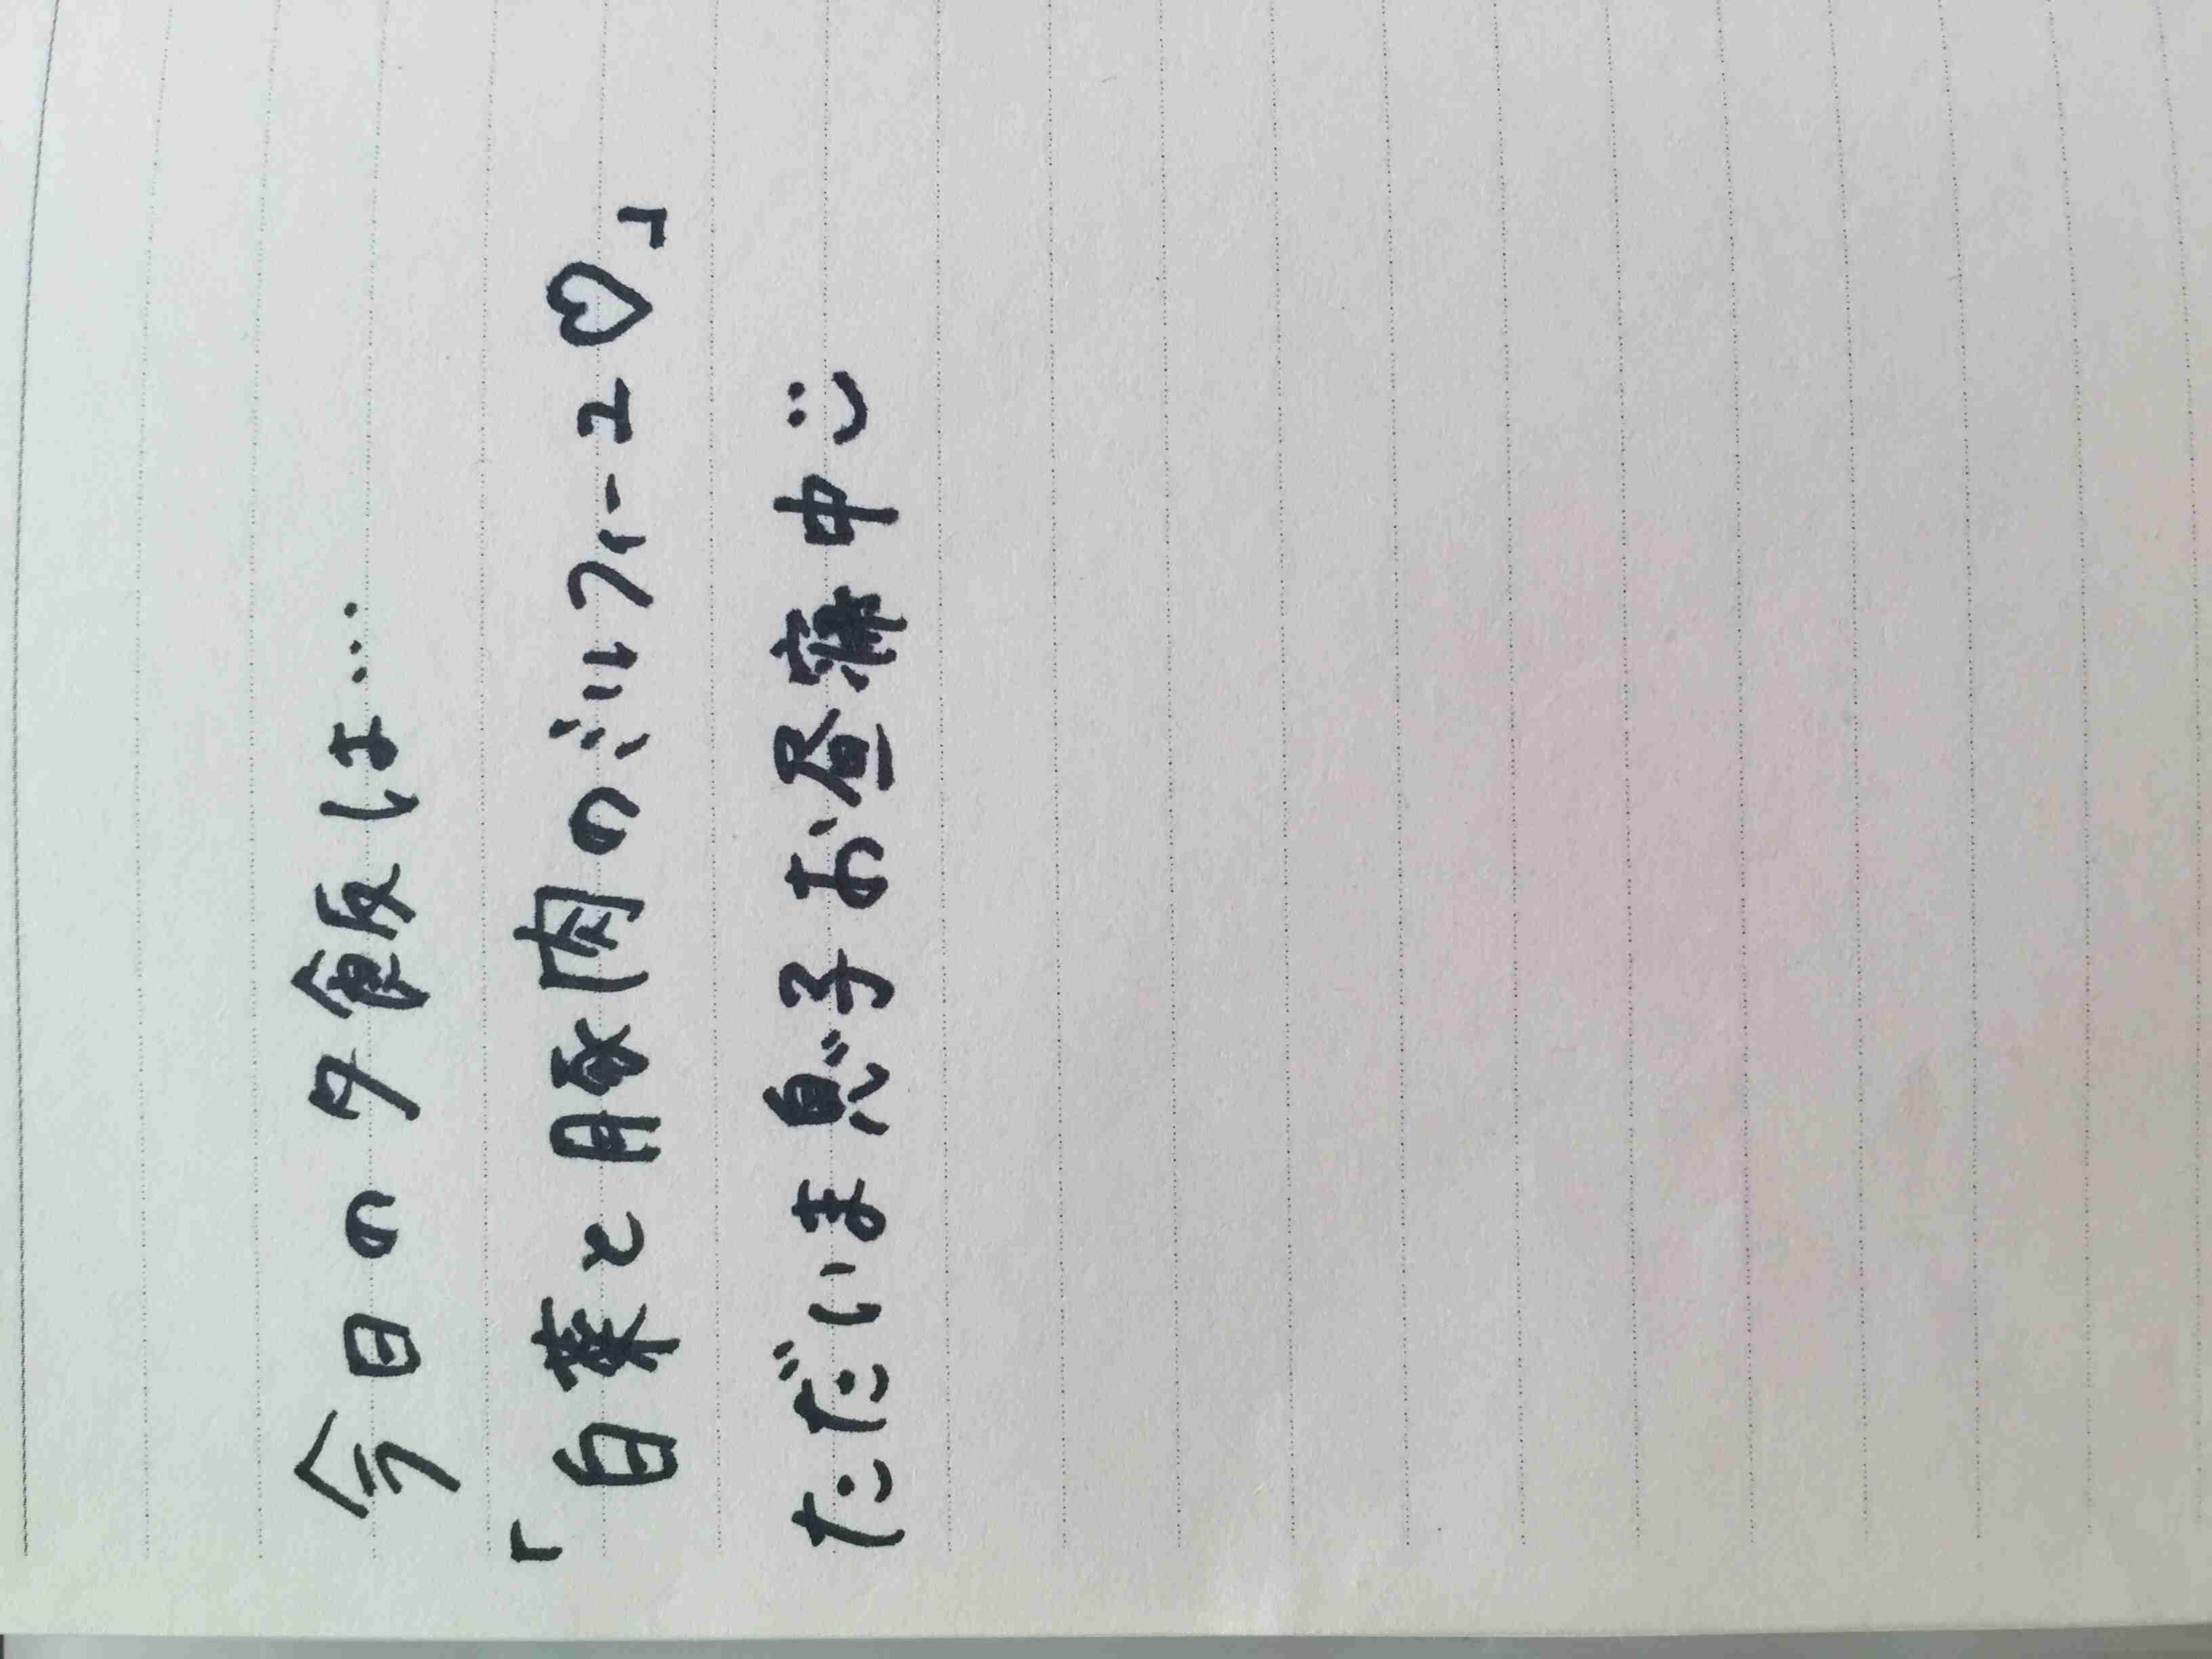 今日の夕飯は…
「白菜と豚肉のミルフィーユ♡」
ただいま息子お昼寝中:)